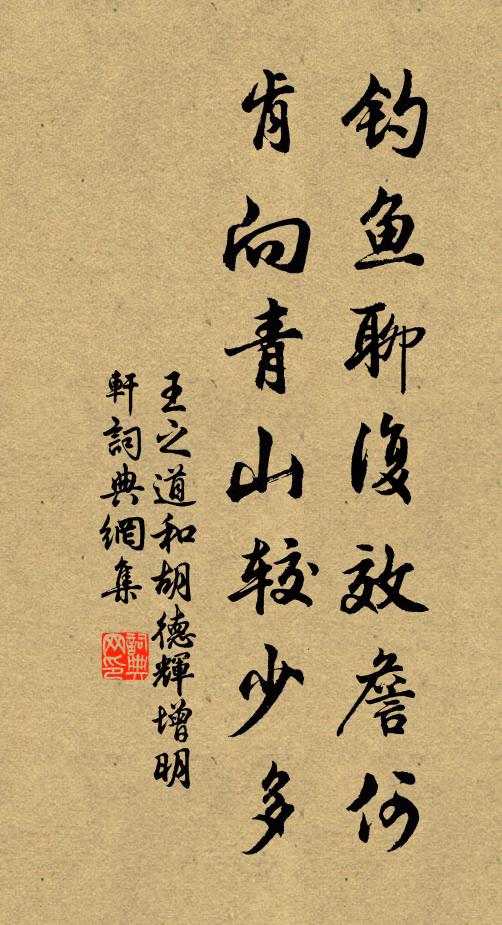 钓鱼聊復效詹何
肯向青山较少多
王之道和胡德輝增明
軒詞典網集
詞典网印